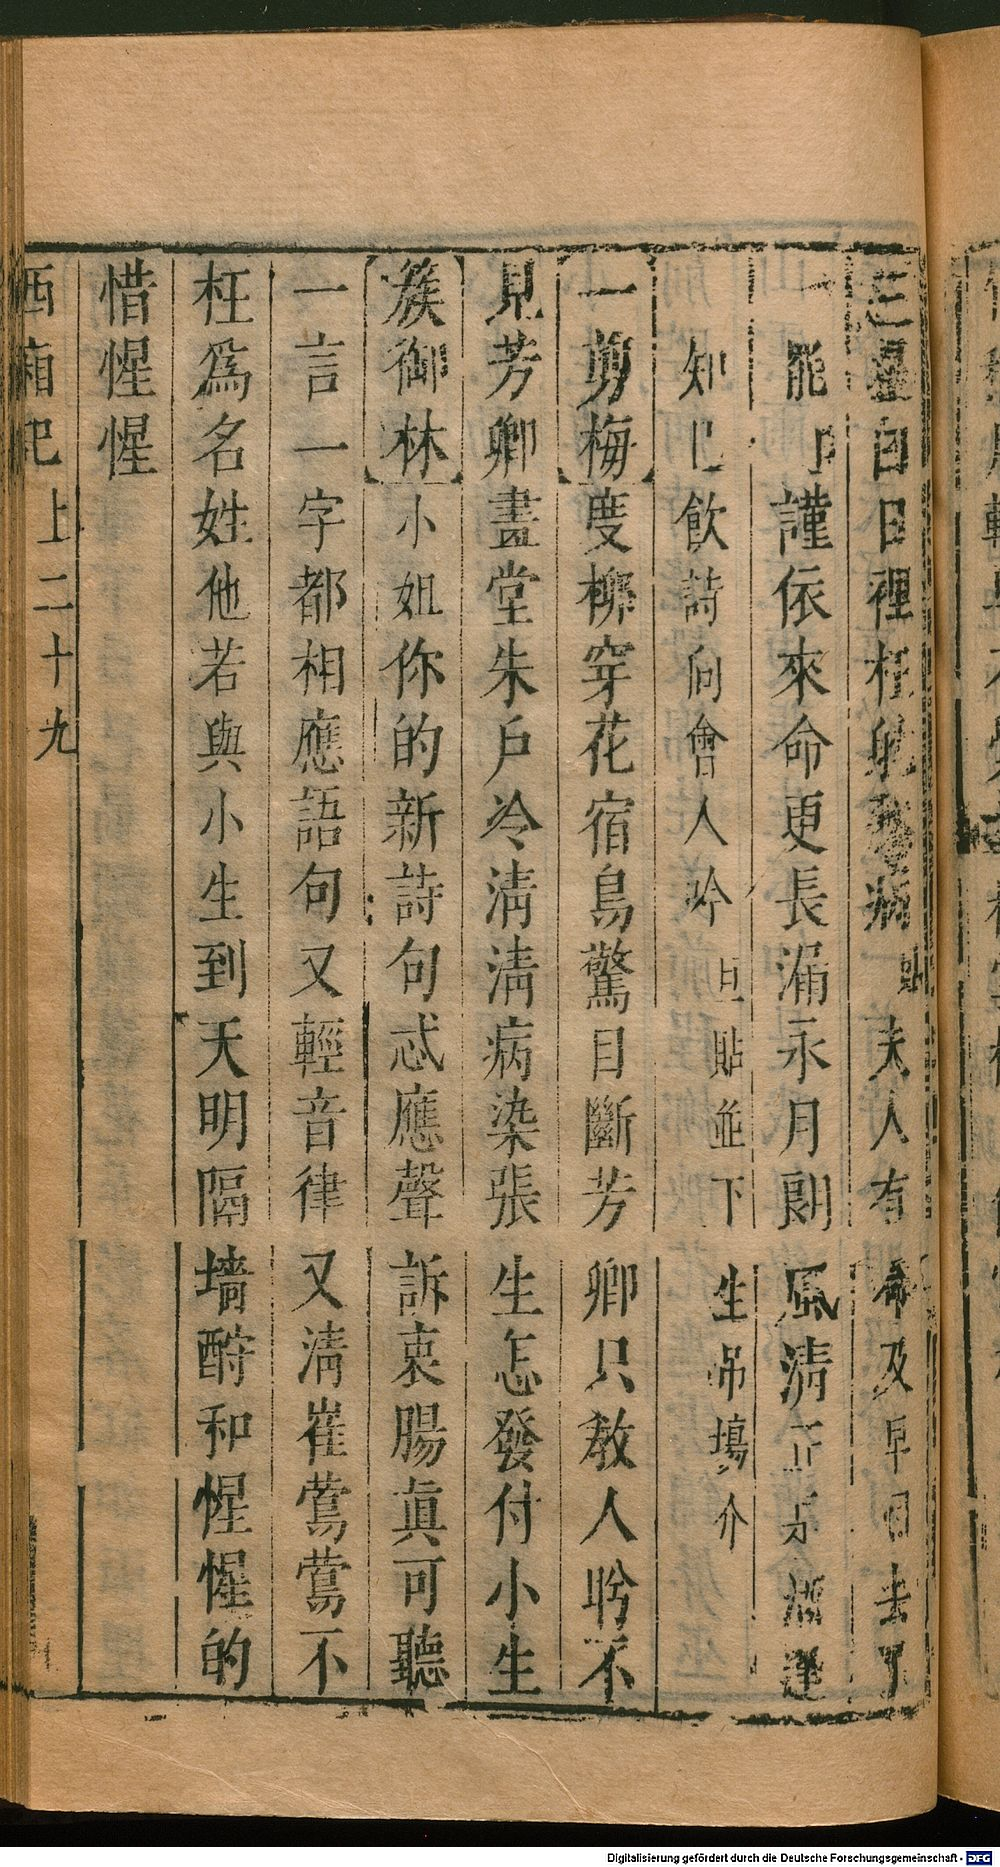 三星自日裡枉躭疾病 貼 夫人有命及早回去了
能 謹依來命更長漏永月朗風清 正是酒逢
知已飲詩向會人吟 旦貼並下 生吊場介
一剪梅度柳穿花宿鳥驚目斷芳卿只教人盻不
見芳卿畫堂朱戶冷清清病染張生怎發付小生
簇御林小姐你的新詩句忒應聲訴衷腸真可聽
一言一字都相應語句又輕音律又清崔鶯鶯不
枉為名姓他若與小生到天明隔墻酧和惺惺的
惜惺惺
西廂记 上二十九
Digitalisierung gefördert durch die Deutsche Forschungsgemeinschaft - DFG